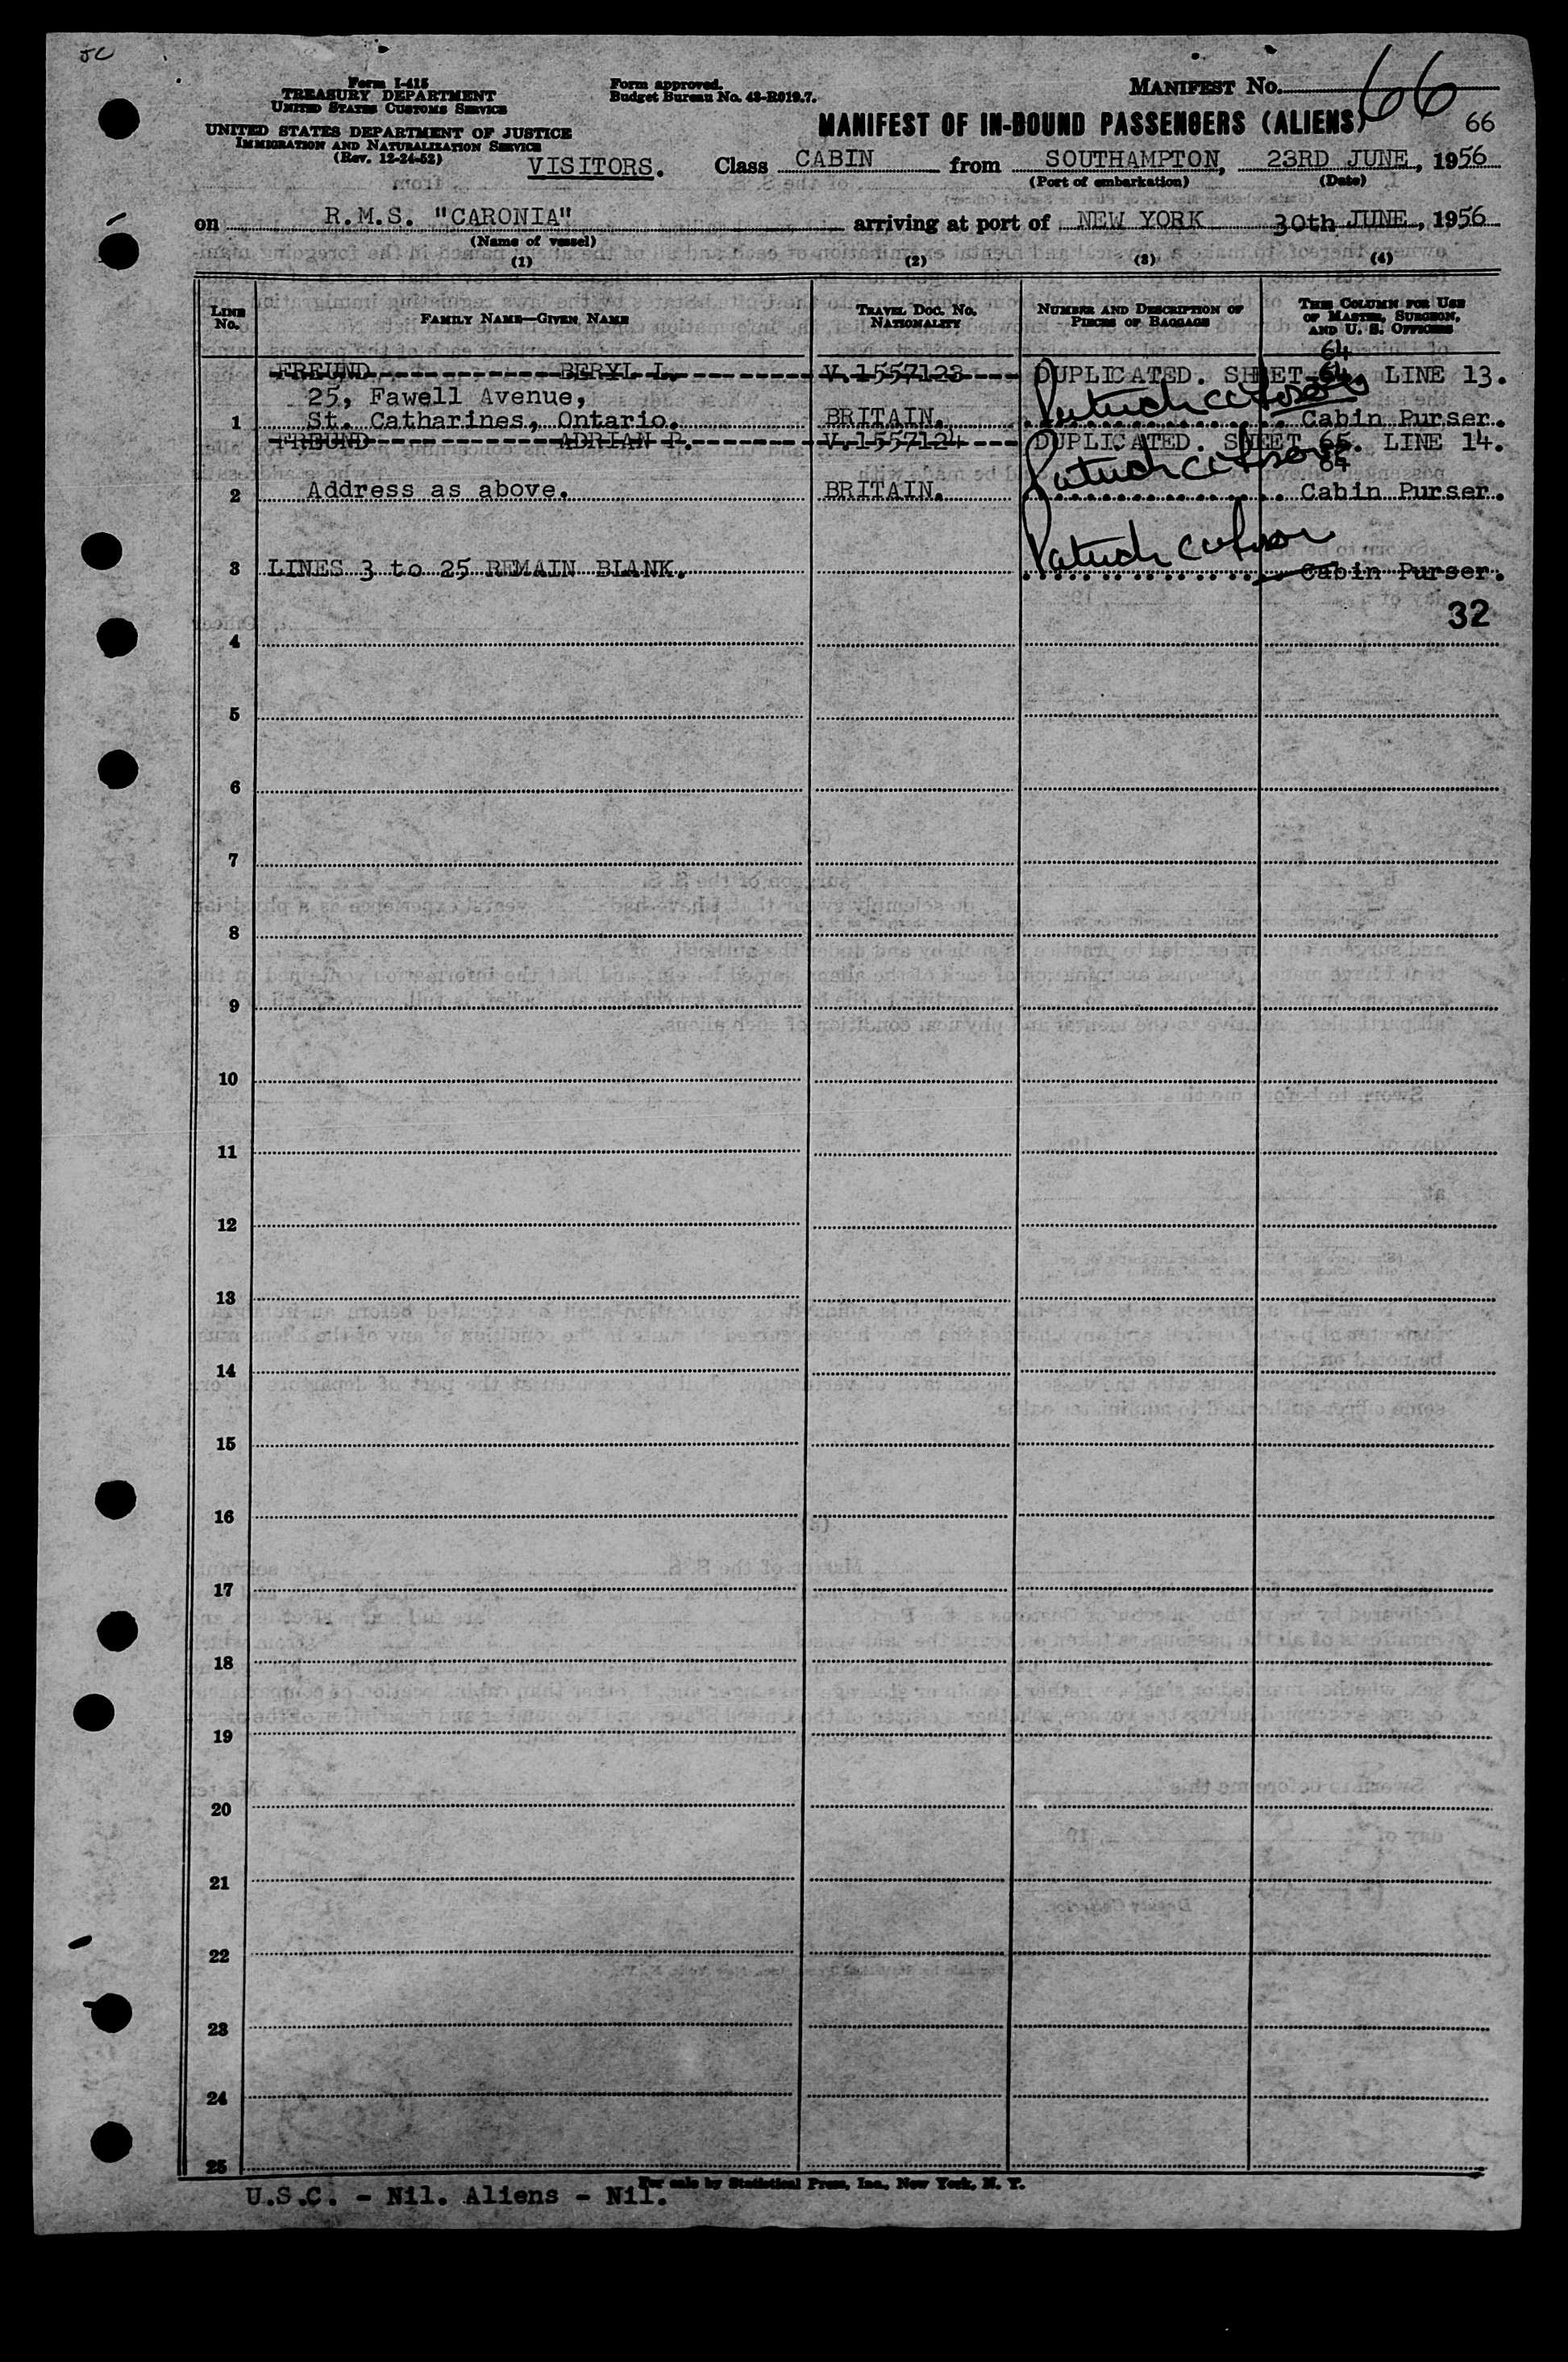 JC
Form I-415
TREASURY DEPARTMENT
UNITED STATES CUSTOMS SERVICE
UNITED STATES DEPARTMENT OF JUSTICE
IMMIGRATION AND NATURALIZATION SERVICE
(Rev. 12-24-52)
Form approved.
Budget Bureau No. 43-R019.7.
MANIFEST No. 66
MANIFEST OF IN-BOUND PASSENGERS (ALIENS) 66
VISITORS. Class CABIN from SOUTHAMPTON, 23RD JUNE, 1956
(Port of embarkation) (Date)
on R.M.S. "CARONIA" arriving at port of NEW YORK 30th JUNE, 1956
(Name of vessel)
(1) (2) (3) (4)
LINE No. FAMILY NAME—GIVEN NAME TRAVEL DOC. NO. NATIONALITY NUMBER AND DESCRIPTION OF PIECES OF BAGGAGE THIS COLUMN FOR USE OF MASTER, SURGEON, AND U. S. OFFICERS
64
FREUND BERYL L. V.1557123 DUPLICATED. SHEET LINE 13.
25, Fawell Avenue,
1 St. Catharines, Ontario. BRITAIN. Cabin Purser.
FREUND ADRIAN P. V.1557124 DUPLICATED. SHEET 65. LINE 14.
64
2 Address as above. BRITAIN. Cabin Purser.
3 LINES 3 to 25 REMAIN BLANK. Cabin Purser.
32
4
5
6
7
8
9
10
11
12
13
14
15
16
17
18
19
20
21
22
23
24
25
For sale by Statistical Press, Inc., New York, N. Y.
U.S.C. - Nil. Aliens - Nil.